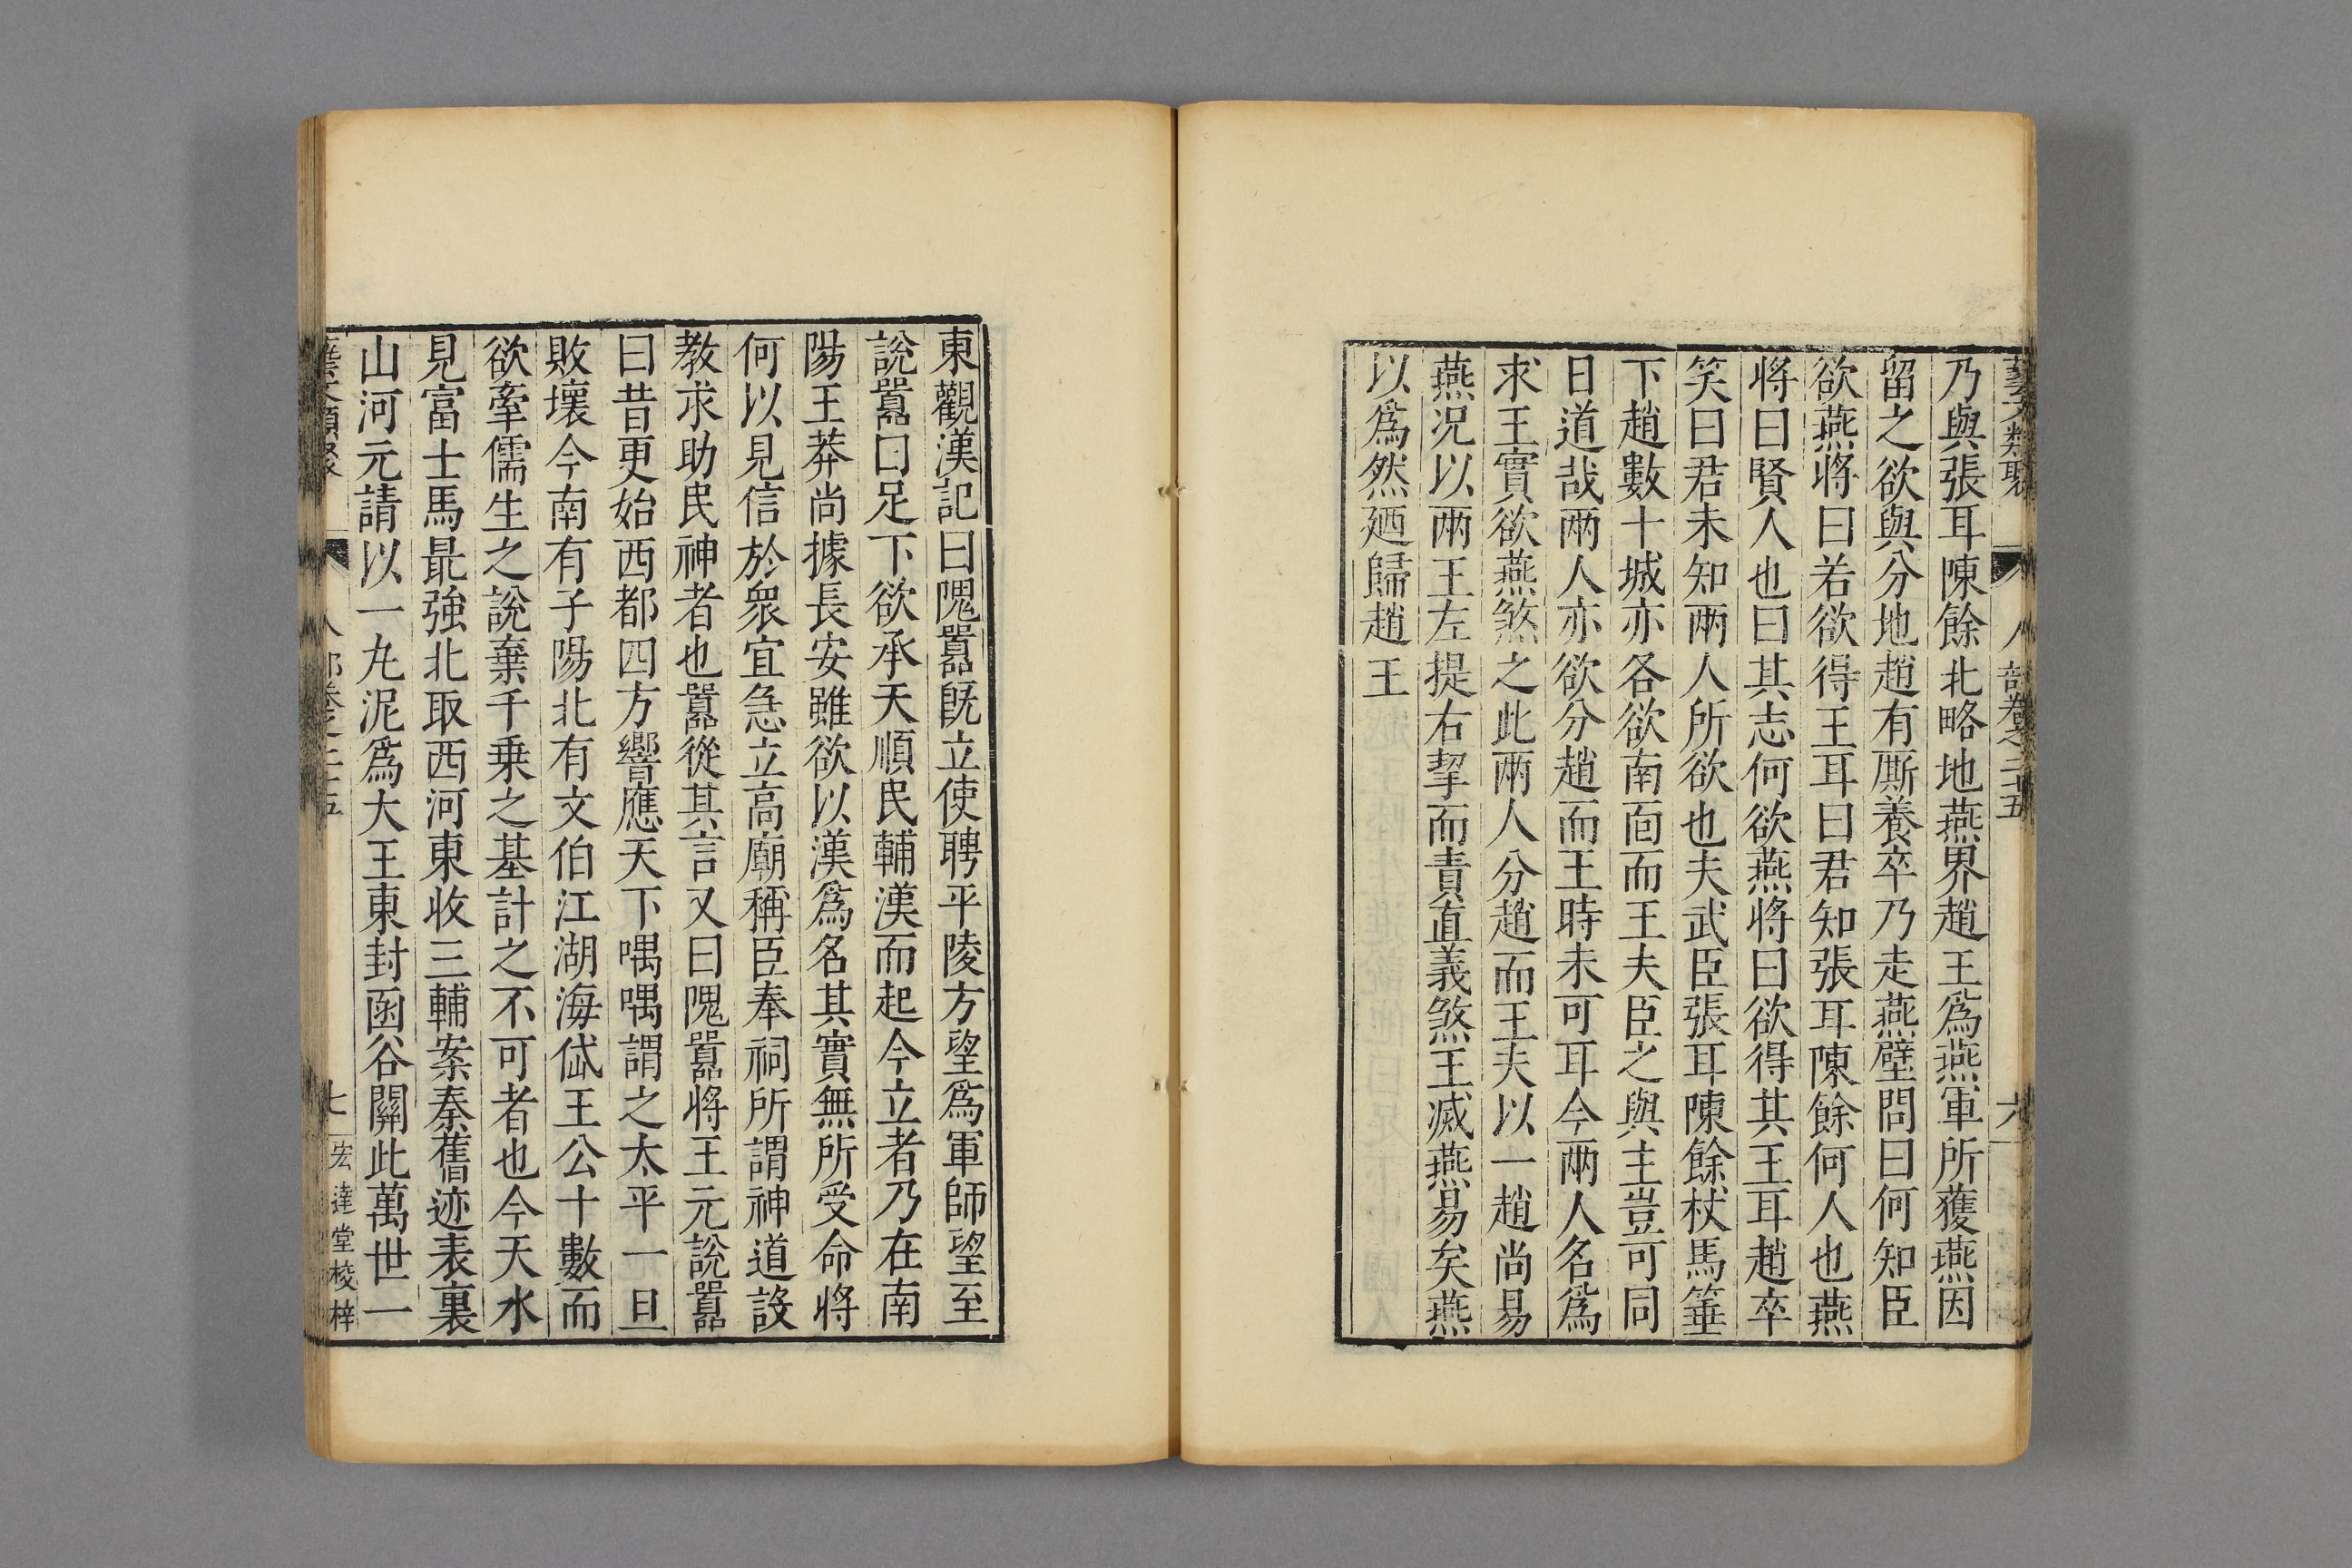 藝文類聚 人部卷之二十五 六
乃與張耳陳餘北略地燕界趙王爲燕軍所獲燕因
留之欲與分地趙有厮養卒乃走燕壁問曰何知臣
欲燕將曰若欲得王耳曰君知張耳陳餘何人也燕
將曰賢人也曰其志何欲燕將曰欲得其王耳趙卒
笑曰君未知兩人所欲也夫武臣張耳陳餘杖馬箠
下趙數十城亦各欲南面而王夫臣之與主豈可同
日道哉兩人亦欲分趙而王時未可耳今兩人名爲
求王實欲燕煞之此兩人分趙而王夫以一趙尚易
燕况以兩王左提右挈而責直義煞王滅燕易矣燕
以爲然廼歸趙王
東觀漢記曰隗囂旣立使聘平陵方望爲軍師望至
說囂曰足下欲承天順民輔漢而起今立者乃在南
陽王莽尚據長安雖欲以漢爲名其實無所受命將
何以見信於衆宜急立高廟稱臣奉祠所謂神道設
教求助民神者也囂從其言又曰隗囂將王元說囂
曰昔更始西都四方響應天下喁喁謂之太平一旦
敗壞今南有子陽北有文伯江湖海岱王公十數而
欲牽儒生之說棄千乗之基計之不可者也今天水
見富士馬最強北取西河東收三輔案秦舊迹表裏
山河元請以一丸泥爲大王東封函谷關此萬世一
藝文類聚 人部卷之二十五 七 宏達堂校梓